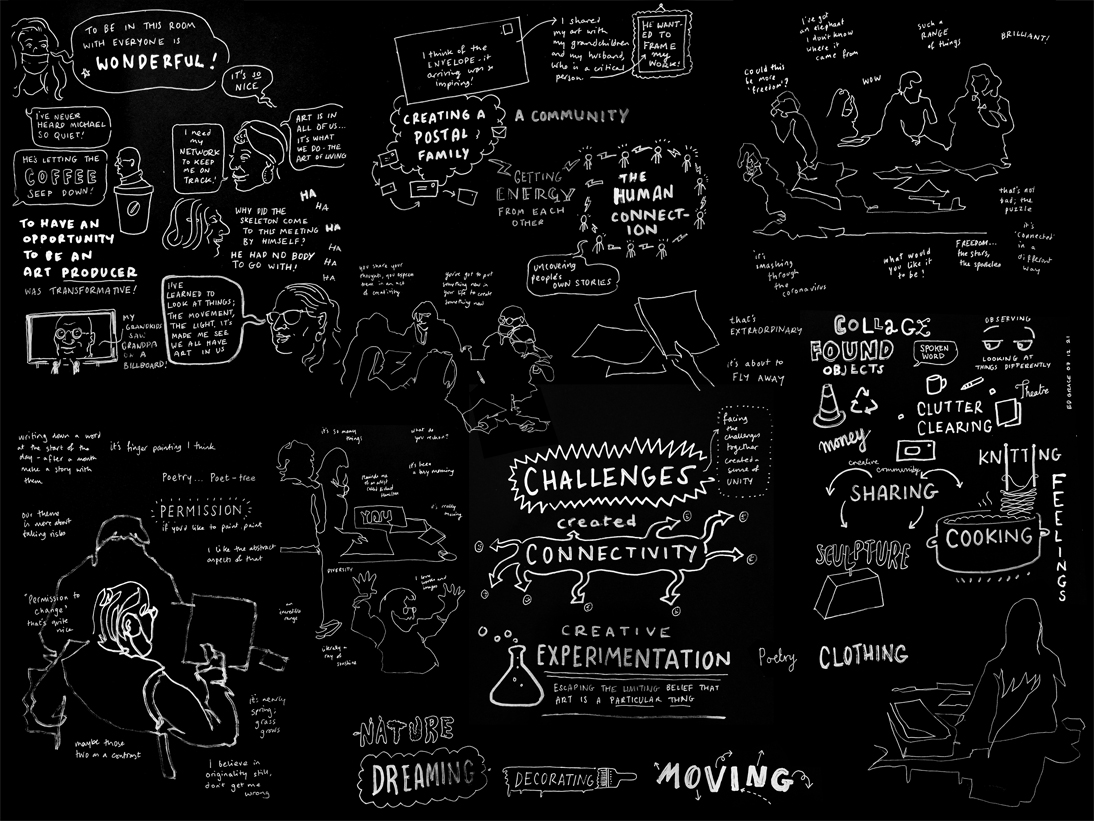 TO BE IN THIS ROOM
WITH EVERYONE IS
WONDERFUL!
IT'S SO
NICE
I'VE NEVER
HEARD MICHAEL
SO QUIET!
HE'S LETTING THE
COFFEE
SEEP DOWN!
I NEED
MY
NETWORK
TO KEEP
ME ON
TRACK!
ART IS IN
ALL OF US...
IT'S WHAT
WE DO - THE
ART OF LIVING
TO HAVE AN
OPPORTUNITY
TO BE AN
ART PRODUCER
WAS TRANSFORMATIVE!
WHY DID THE
SKELETON COME
TO THIS MEETING
BY HIMSELF?
HE HAD NO BODY
TO GO WITH!
HA
HA
HA
HA
HA
HA
MY
GRANDKIDS
SAW
GRANDPA
ON A
BILLBOARD!
I'VE
LEARNED TO
LOOK AT THINGS;
THE MOVEMENT,
THE LIGHT, IT'S
MADE ME SEE
WE ALL HAVE
ART IN US
I think of the
ENVELOPE - it
arriving was so
inspiring!
I shared
my art with
my grandchildren
and my husband,
who is a critical
person
HE WANT-
ED TO
FRAME
my
WORK!
CREATING A
POSTAL
FAMILY
A COMMUNITY
GETTING
ENERGY
FROM EACH
OTHER
THE
HUMAN
CONNECT-
ION
UNCOVERING
PEOPLE'S
OWN STORIES
you share your
thoughts, you express
them in an act
of creativity
you've got to put
something new in
your life to create
something new
I've got
an elephant
I don't know
where it
came from
such a
RANGE
of things
BRILLIANT!
Could this
be more
'freedom'?
WOW
that's not
bad; the
puzzle
it's
'connected'
in a
different
way
it's
smashing
through
the
coronavirus
what would
you like it
to be?
FREEDOM...
the stars,
the sparkles
that's
EXTRAORDINARY
it's about to
FLY AWAY
COLLAGE
FOUND
OBJECTS
SPOKEN
WORD
OBSERVING
LOOKING AT
THINGS DIFFERENTLY
ED GRACE 09.12.21
CLUTTER
CLEARING
Theatre
money
creative
community
SHARING
KNITTING
COOKING
FEELINGS
SCULPTURE
Poetry
CLOTHING
writing down a word
at the start of the
day - after a month
make a story with
them
it's finger painting I think
Poetry... Poet-tree
PERMISSION
if you'd like to paint, paint
our theme
is more about
taking risks
I like the abstract
aspects of that
'Permission to
change'
that's quite
nice
it's nearly
spring;
grass
grows
maybe those
two in a contrast
I believe in
originality still,
don't get me
wrong
it's so many
things
what do
you reckon?
it's been
a busy morning
YOU
DIVERSITY
an
incredible
range
I love words and
images
literally a
ray of
sunshine
CHALLENGES
created
CONNECTIVITY
facing
the
challenges
together
created a
sense of
UNITY
CREATIVE
EXPERIMENTATION
ESCAPING THE LIMITING BELIEF THAT
ART IS A PARTICULAR THING
NATURE
DREAMING
DECORATING
MOVING